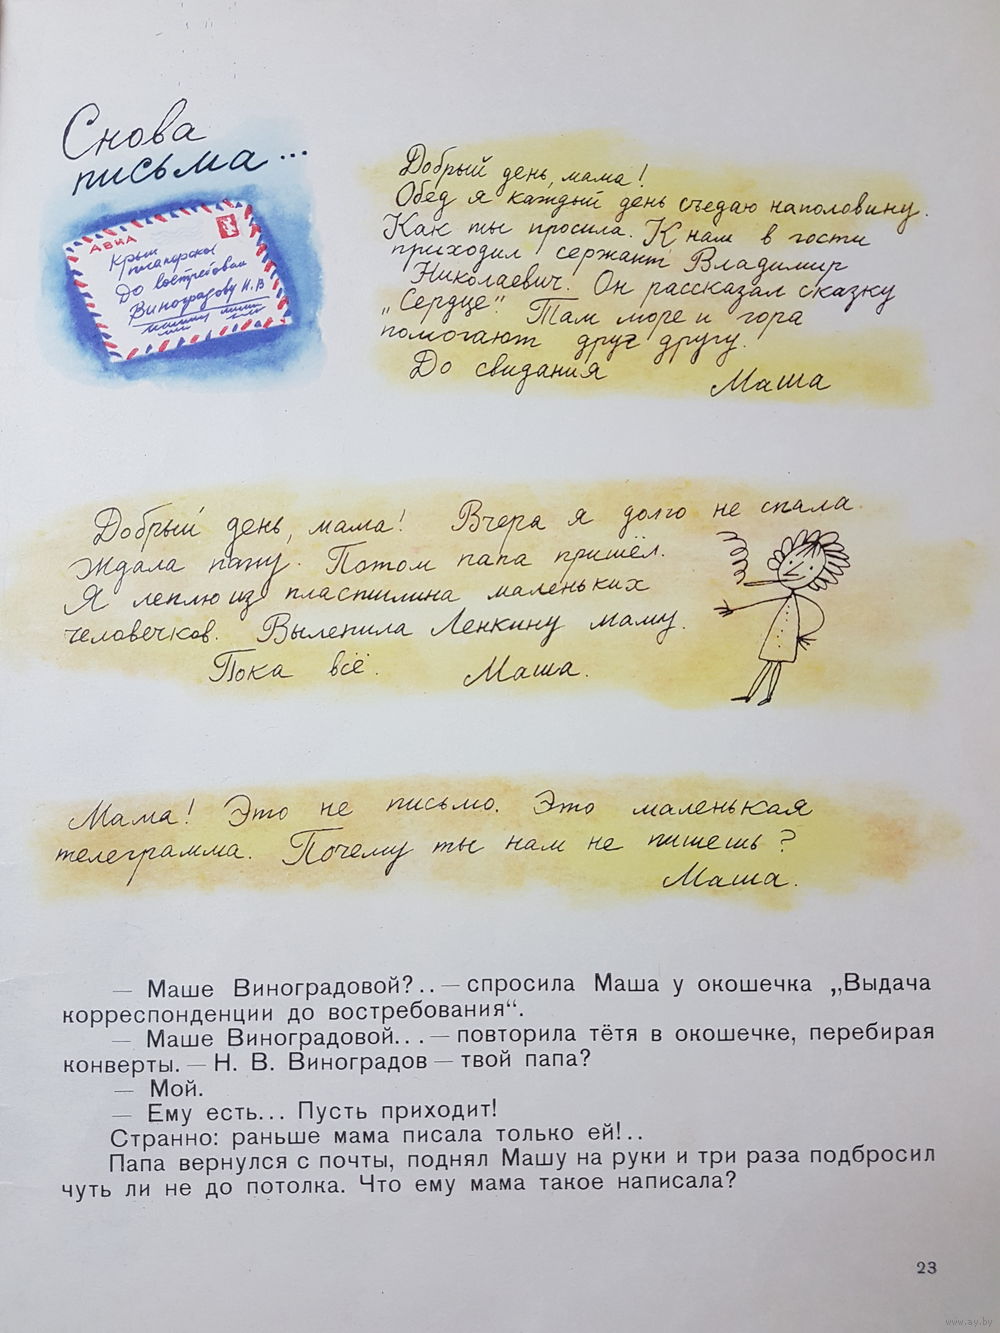 Снова
письма...
АВИА
Крым
Планорское
До востребован
Виноградову Н.В
Добрый день, мама!
Обед я каждый день съедаю наполовину.
Как ты просила. К нам в гости
приходил сержант Владимир
Николаевич. Он рассказал сказку
„Сердце". Там море и гора
помогают друг другу.
До свидания Маша
Добрый день, мама! Вчера я долго не спала.
Ждала папу. Потом папа пришёл.
Я леплю из пластилина маленьких
человечков. Вылепила Ленкину маму.
Пока всё. Маша.
Мама! Это не письмо. Это маленькая
телеграмма. Почему ты нам не пишешь?
Маша.
— Маше Виноградовой?..— спросила Маша у окошечка „Выдача
корреспонденции до востребования“.
— Маше Виноградовой...— повторила тётя в окошечке, перебирая
конверты.— Н. В. Виноградов— твой папа?
— Мой.
— Ему есть... Пусть приходит!
Странно: раньше мама писала только ей!..
Папа вернулся с почты, поднял Машу на руки и три раза подбросил
чуть ли не до потолка. Что ему мама такое написала?
23
www.ay.by